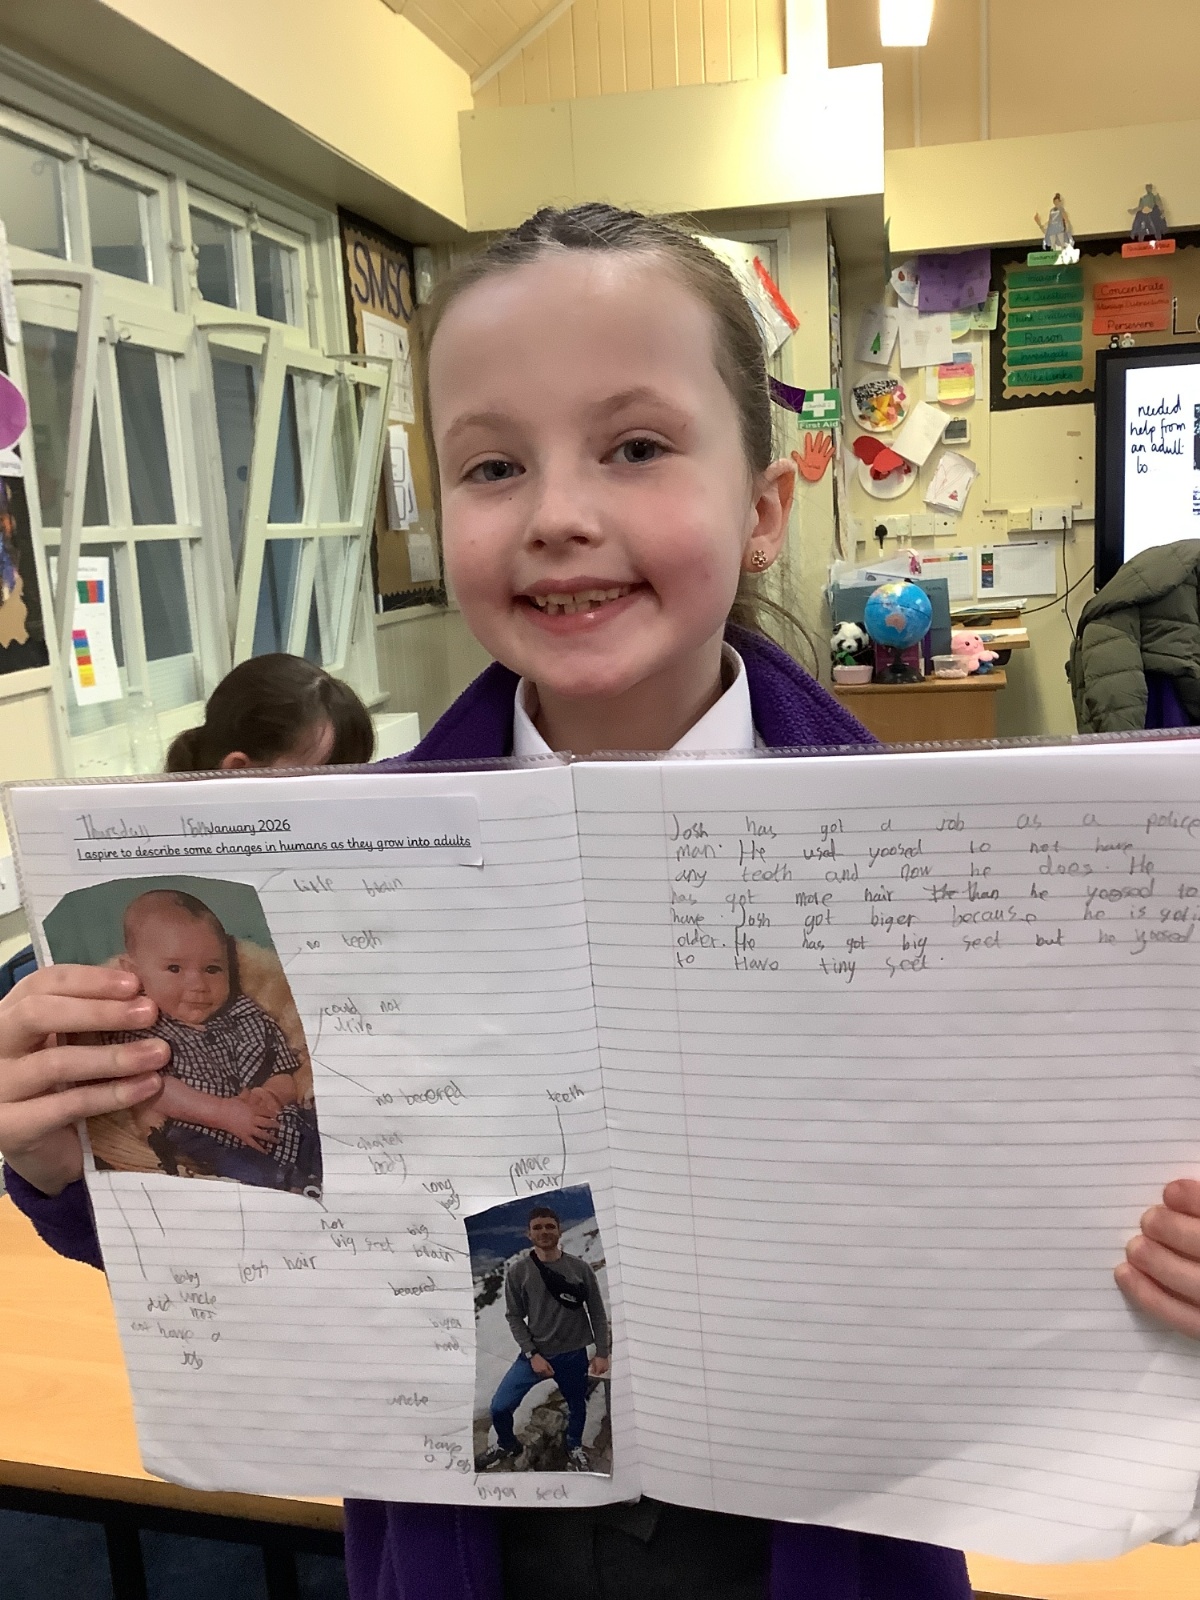 SMSC
Concentrate
Persevere
Reason
Investigate
Make Links
First Aid
needed
help from
an adult
to
Thursday 15th January 2026
I aspire to describe some changes in humans as they grow into adults
little brain
no teeth
could not
drive
no beeered
body
not
big feet
less hair
baby
uncle
did not
have a
job
teeth
more
hair
long
big
brain
beeered
uncle
have
a job
biger feet
Josh has got a job as a police
man. He used yoosed to not have
any teeth and now he does. He
has got more hair than he yoosed to
have. Josh got biger because he is
older. He has got big feet but he yoosed
to Have tiny feet.